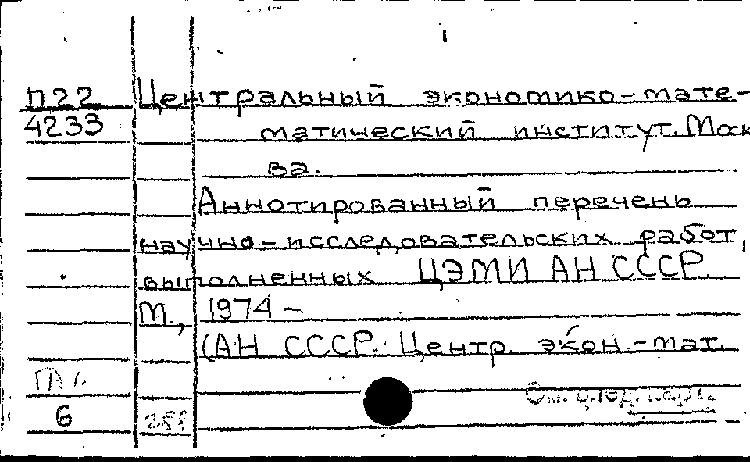 П22 Центральный экономико-мате-
4233 матический институт. Моск
ва.
Аннотированный перечень
научно-исследовательских работ,
выполненных ЦЭМИ АН СССР.
М., 1974 -
(АН СССР. Центр. экон.-мат.
См. след. карт.
6